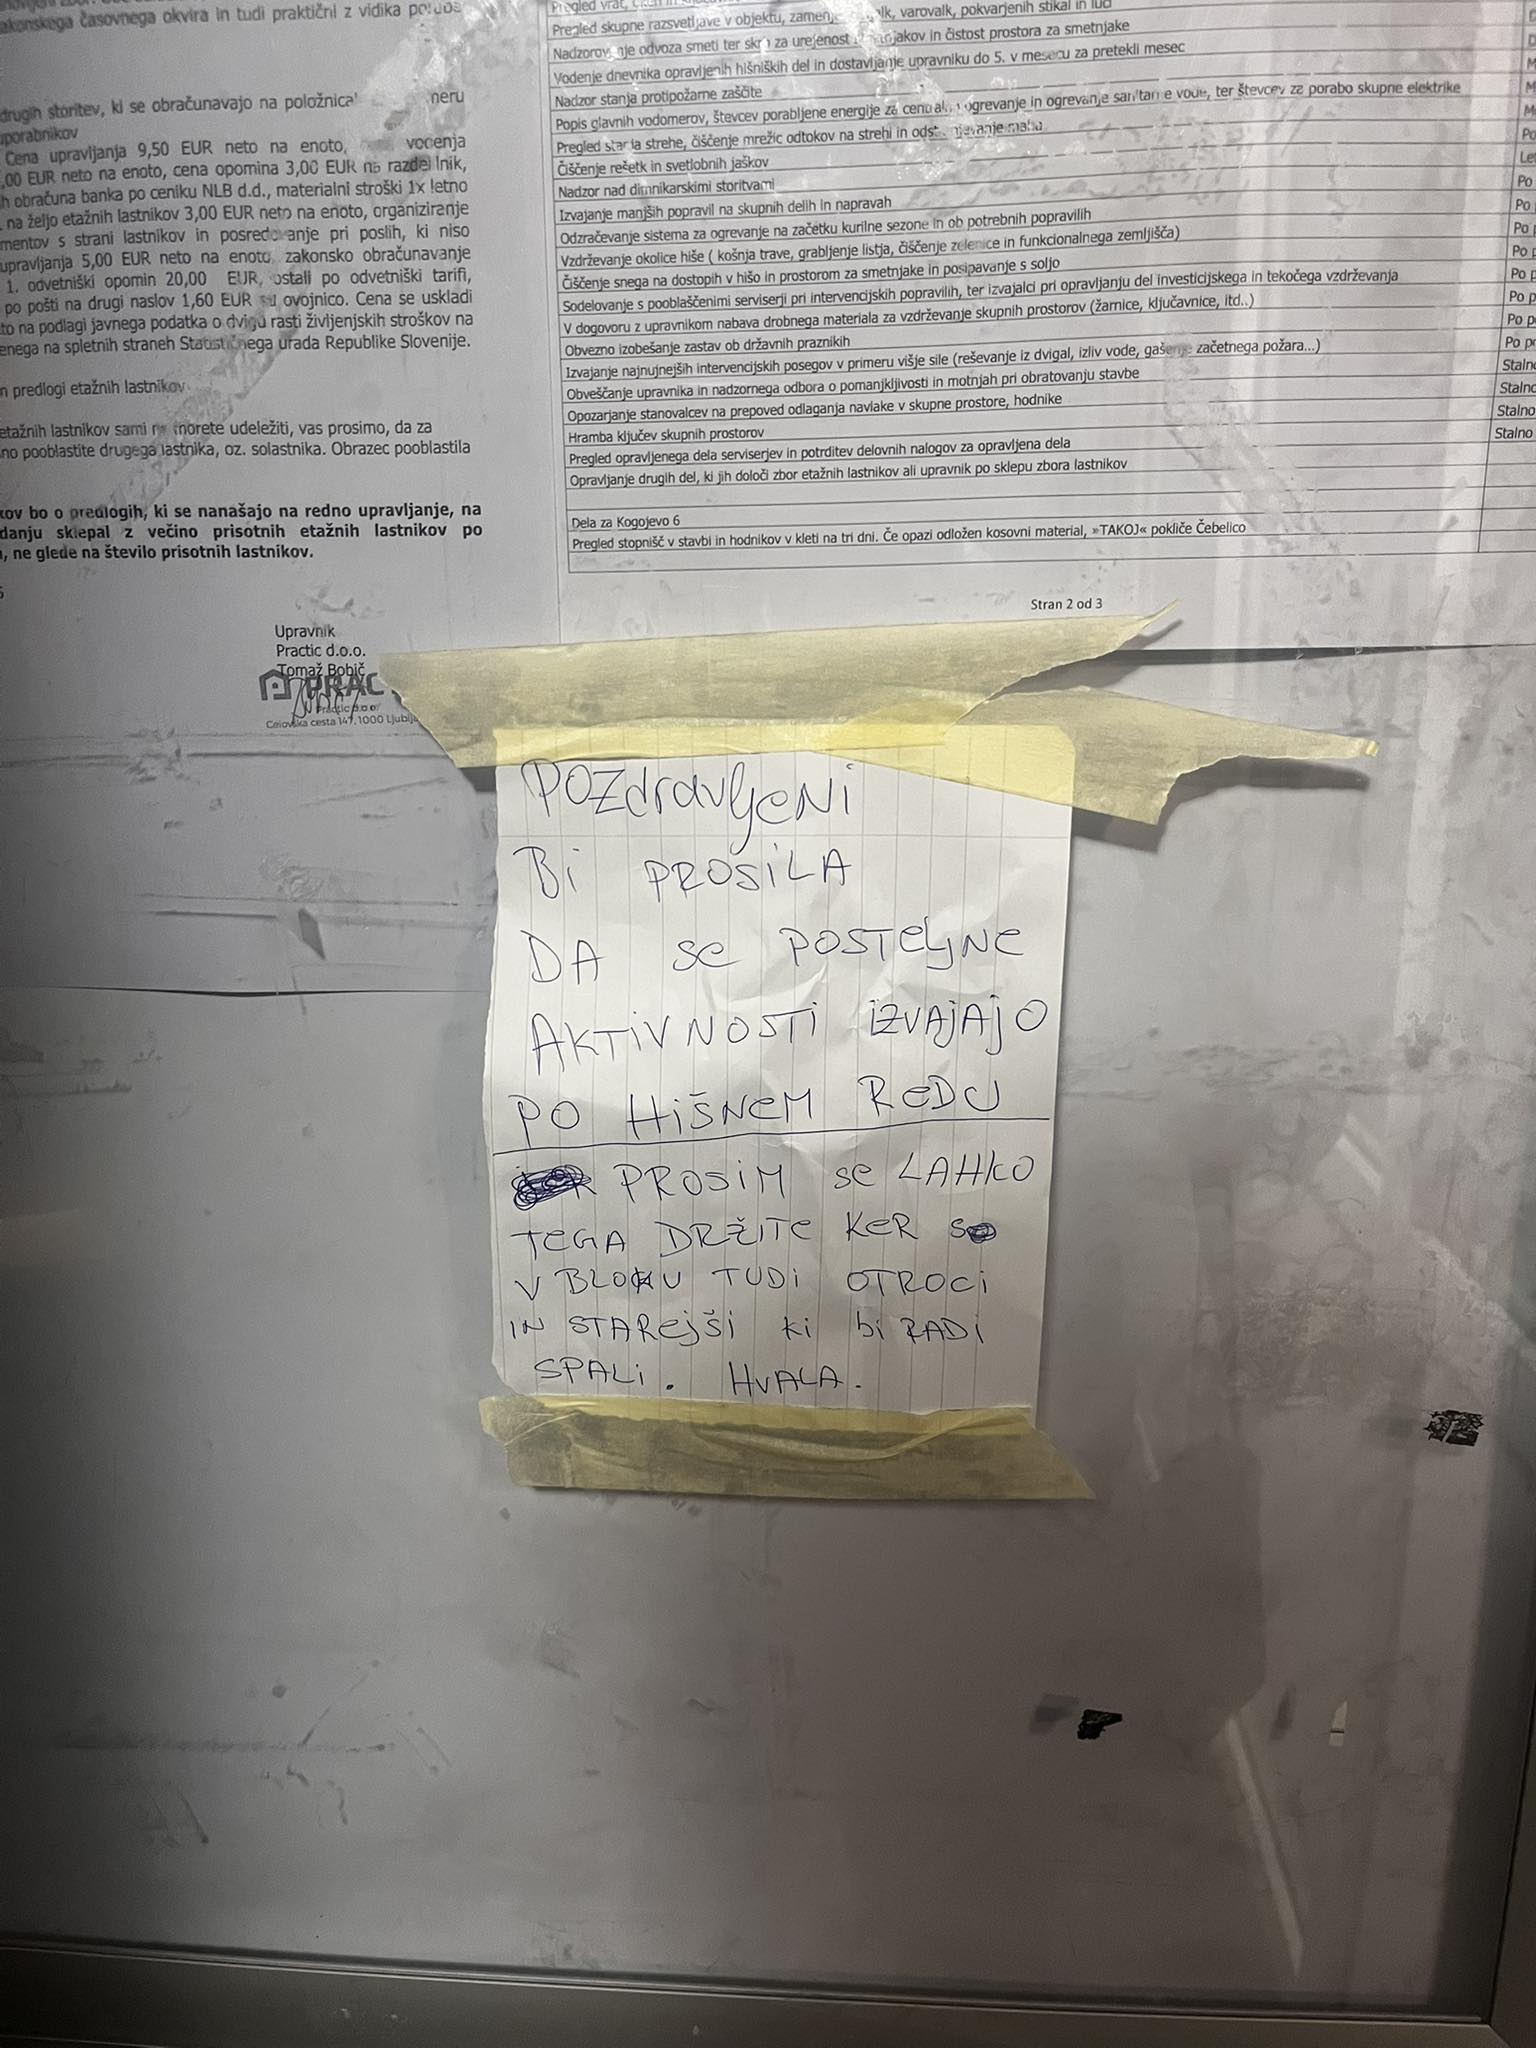 akonskega časovnega okvira in tudi praktični z vidika
drugih storitev, ki se obračunavajo na
uporabnikov
Cena upravljanja 9,50 EUR neto na enoto, vodenja
,00 EUR neto na enoto, cena opomina 3,00 EUR na razdelilnik,
h obračuna banka po ceniku NLB d.d., materialni stroški 1x letno
na željo etažnih lastnikov 3,00 EUR neto na enoto, organiziranje
mentov s strani lastnikov in posredovanje pri poslih, ki niso
upravljanja 5,00 EUR neto na enoto, zakonsko obračunavanje
1. odvetniški opomin 20,00 EUR, ostali po odvetniški tarifi,
po pošti na drugi naslov 1,60 EUR su ovojnico. Cena se uskladi
to na podlagi javnega podatka o dvigu rasti življenjskih stroškov na
enega na spletnih straneh Statističnega urada Republike Slovenije.
n predlogi etažnih lastnikov.
etažnih lastnikov sami ne morete udeležiti, vas prosimo, da za
no pooblastite drugega lastnika, oz. solastnika. Obrazec pooblastila
kov bo o predlogih, ki se nanašajo na redno upravljanje, na
danju sklepal z večino prisotnih etažnih lastnikov po
, ne glede na število prisotnih lastnikov.
Upravnik
Practic d.o.o.
Tomaž Bobič
PRAC
Practic d.o.o.
Celovška cesta 147, 1000 Ljublj
Pregled vrat,
Pregled skupne razsvetljave v objektu, varovalk, pokvarjenih stikal in luči
Nadzorovanje odvoza smeti ter skrb za urejenost smetnjakov in čistost prostora za smetnjake
Vodenje dnevnika opravljenih hišniških del in dostavljanje upravniku do 5. v mesecu za pretekli mesec
Nadzor stanja protipožarne zaščite
Popis glavnih vodomerov, števcev porabljene energije za centralno ogrevanje in ogrevanje sanitarne vode, ter števcev za porabo skupne elektrike
Pregled stanja strehe, čiščenje mrežic odtokov na strehi in odstranjevanje mahu
Čiščenje rešetk in svetlobnih jaškov
Nadzor nad dimnikarskimi storitvami
Izvajanje manjših popravil na skupnih delih in napravah
Odzračevanje sistema za ogrevanje na začetku kurilne sezone in ob potrebnih popravilih
Vzdrževanje okolice hiše ( košnja trave, grabljenje listja, čiščenje zelenice in funkcionalnega zemljišča)
Čiščenje snega na dostopih v hišo in prostorom za smetnjake in posipavanje s soljo
Sodelovanje s pooblaščenimi serviserji pri intervencijskih popravilih, ter izvajalci pri opravljanju del investicijskega in tekočega vzdrževanja
V dogovoru z upravnikom nabava drobnega materiala za vzdrževanje skupnih prostorov (žarnice, ključavnice, itd..)
Obvezno izobešanje zastav ob državnih praznikih
Izvajanje najnujnejših intervencijskih posegov v primeru višje sile (reševanje iz dvigal, izliv vode, gašenje začetnega požara...)
Obveščanje upravnika in nadzornega odbora o pomanjkljivosti in motnjah pri obratovanju stavbe
Opozarjanje stanovalcev na prepoved odlaganja navlake v skupne prostore, hodnike
Hramba ključev skupnih prostorov
Pregled opravljenega dela serviserjev in potrditev delovnih nalogov za opravljena dela
Opravljanje drugih del, ki jih določi zbor etažnih lastnikov ali upravnik po sklepu zbora lastnikov
Dela za Kogojevo 6
Pregled stopnišč v stavbi in hodnikov v kleti na tri dni. Če opazi odložen kosovni material, »TAKOJ« pokliče Čebelico
Po p
Po p
Po p
Po p
Po p
Po p
Po po
Stalno
Stalno
Stalno
Stalno
Stran 2 od 3
POZdravljeNi
Bi PROSiLA
DA Se POSTeljNe
AKTiVNOSTi iZVAJAJO
PO HiŠNeM ReDU
PROSiM Se LAHKO
TeGA DRŽiTe KeR
V BLOKU TUDi OTROCi
IN STARejŠi Ki bi RADi
SPALi. HVALA.